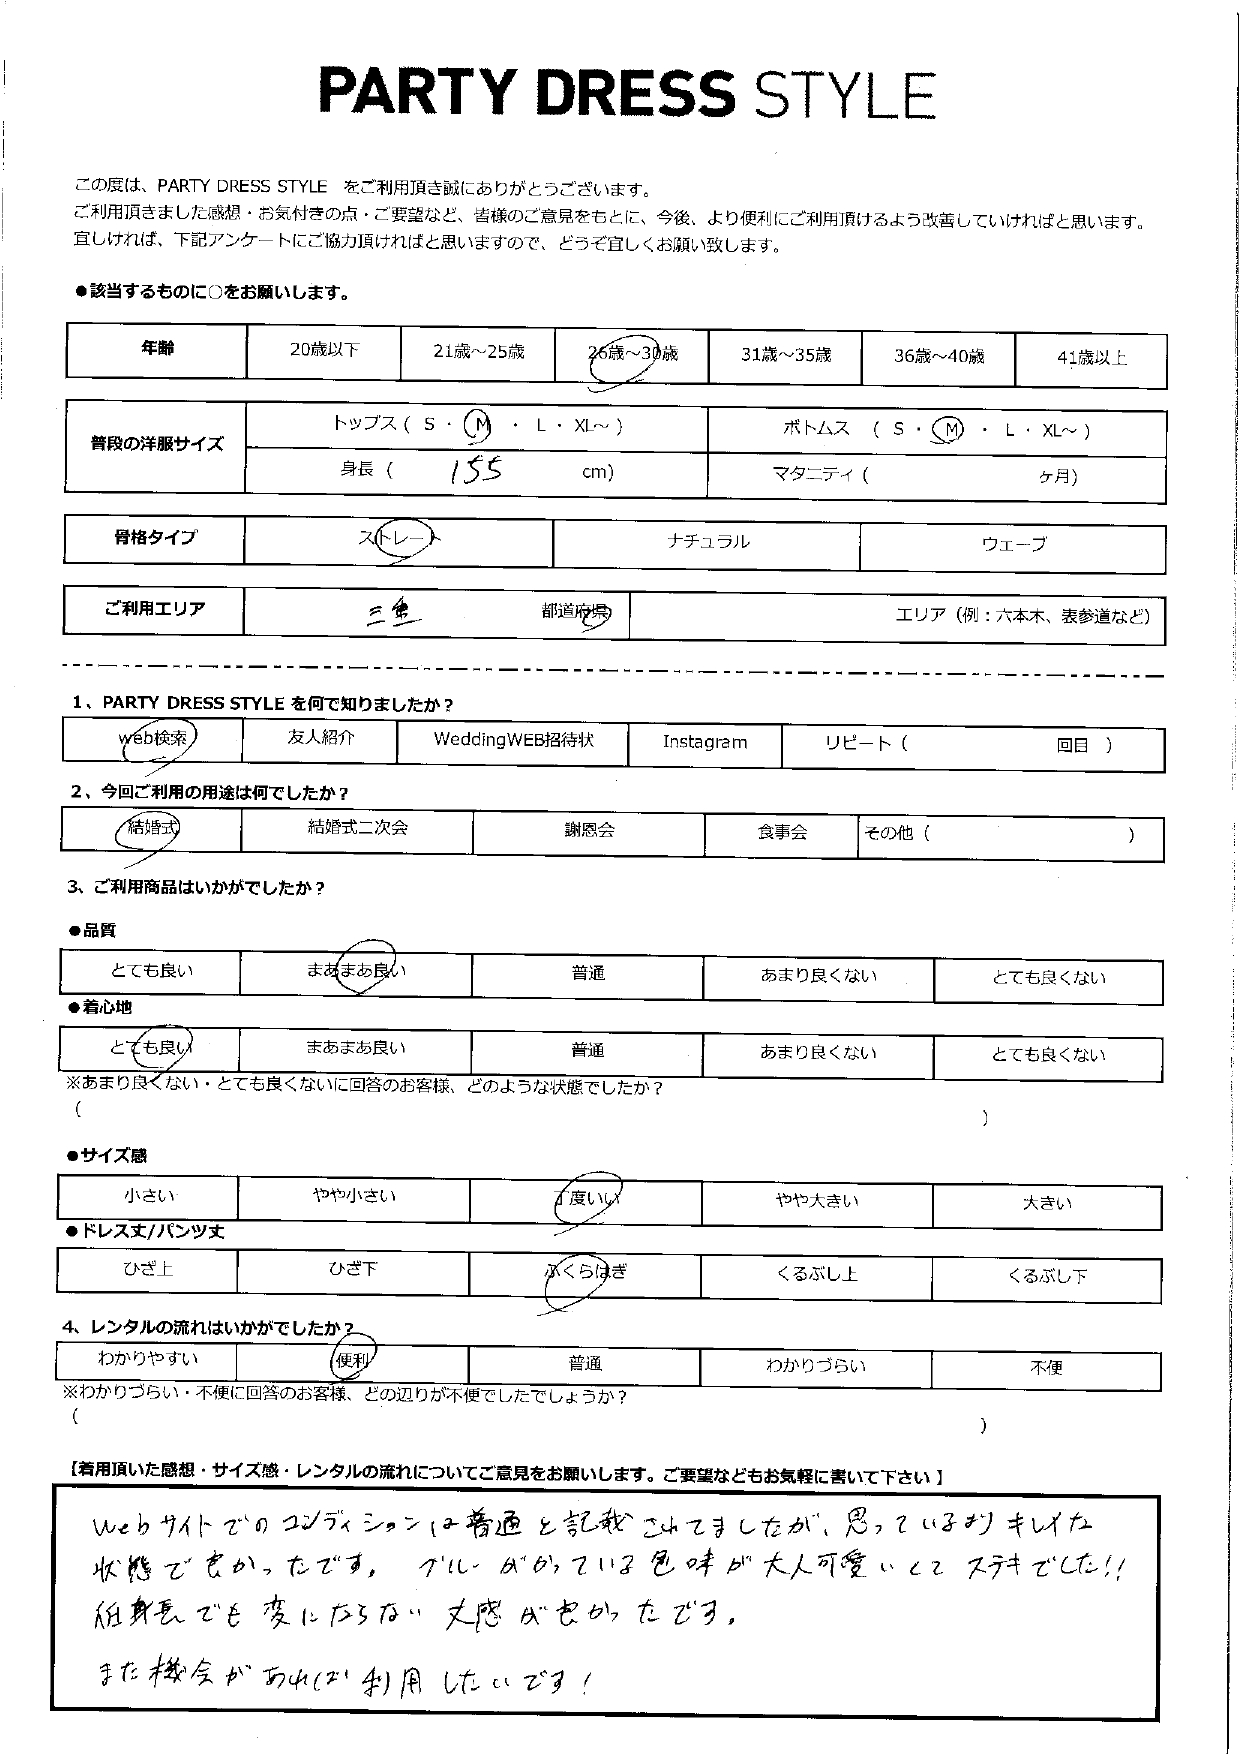 PARTY DRESS STYLE
この度は、PARTY DRESS STYLE をご利用頂き誠にありがとうございます。
ご利用頂きました感想・お気付きの点・ご要望など、皆様のご意見をもとに、今後、より便利にご利用頂けるよう改善していければと思います。
宜しければ、下記アンケートにご協力頂ければと思いますので、どうぞ宜しくお願い致します。
●該当するものに○をお願いします。
年齢 20歳以下 21歳～25歳 26歳～30歳 31歳～35歳 36歳～40歳 41歳以上
普段の洋服サイズ トップス ( S ・ M ・ L ・ XL～ ) ボトムス ( S ・ M ・ L ・ XL～ )
身長 ( 155 cm) マタニティ ( ヶ月)
骨格タイプ ストレート ナチュラル ウェーブ
ご利用エリア 三重 都道府県 エリア（例：六本木、表参道など）
1、PARTY DRESS STYLE を何で知りましたか？
web検索 友人紹介 WeddingWEB招待状 Instagram リピート ( 回目 )
2、今回ご利用の用途は何でしたか？
結婚式 結婚式二次会 謝恩会 食事会 その他 ( )
3、ご利用商品はいかがでしたか？
●品質
とても良い まあまあ良い 普通 あまり良くない とても良くない
●着心地
とても良い まあまあ良い 普通 あまり良くない とても良くない
※あまり良くない・とても良くないに回答のお客様、どのような状態でしたか？
( )
●サイズ感
小さい やや小さい 丁度いい やや大きい 大きい
●ドレス丈/パンツ丈
ひざ上 ひざ下 ふくらはぎ くるぶし上 くるぶし下
4、レンタルの流れはいかがでしたか？
わかりやすい 便利 普通 わかりづらい 不便
※わかりづらい・不便に回答のお客様、どの辺りが不便でしたでしょうか？
( )
【着用頂いた感想・サイズ感・レンタルの流れについてご意見をお願いします。ご要望などもお気軽に書いて下さい】
Webサイトでのコンディションは普通と記載されてましたが、思っているよりキレイな
状態で良かったです。グレーがかっている色味が大人可愛いくてステキでした!!
低身長でも変にならない丈感が良かったです。
また機会があれば利用したいです！